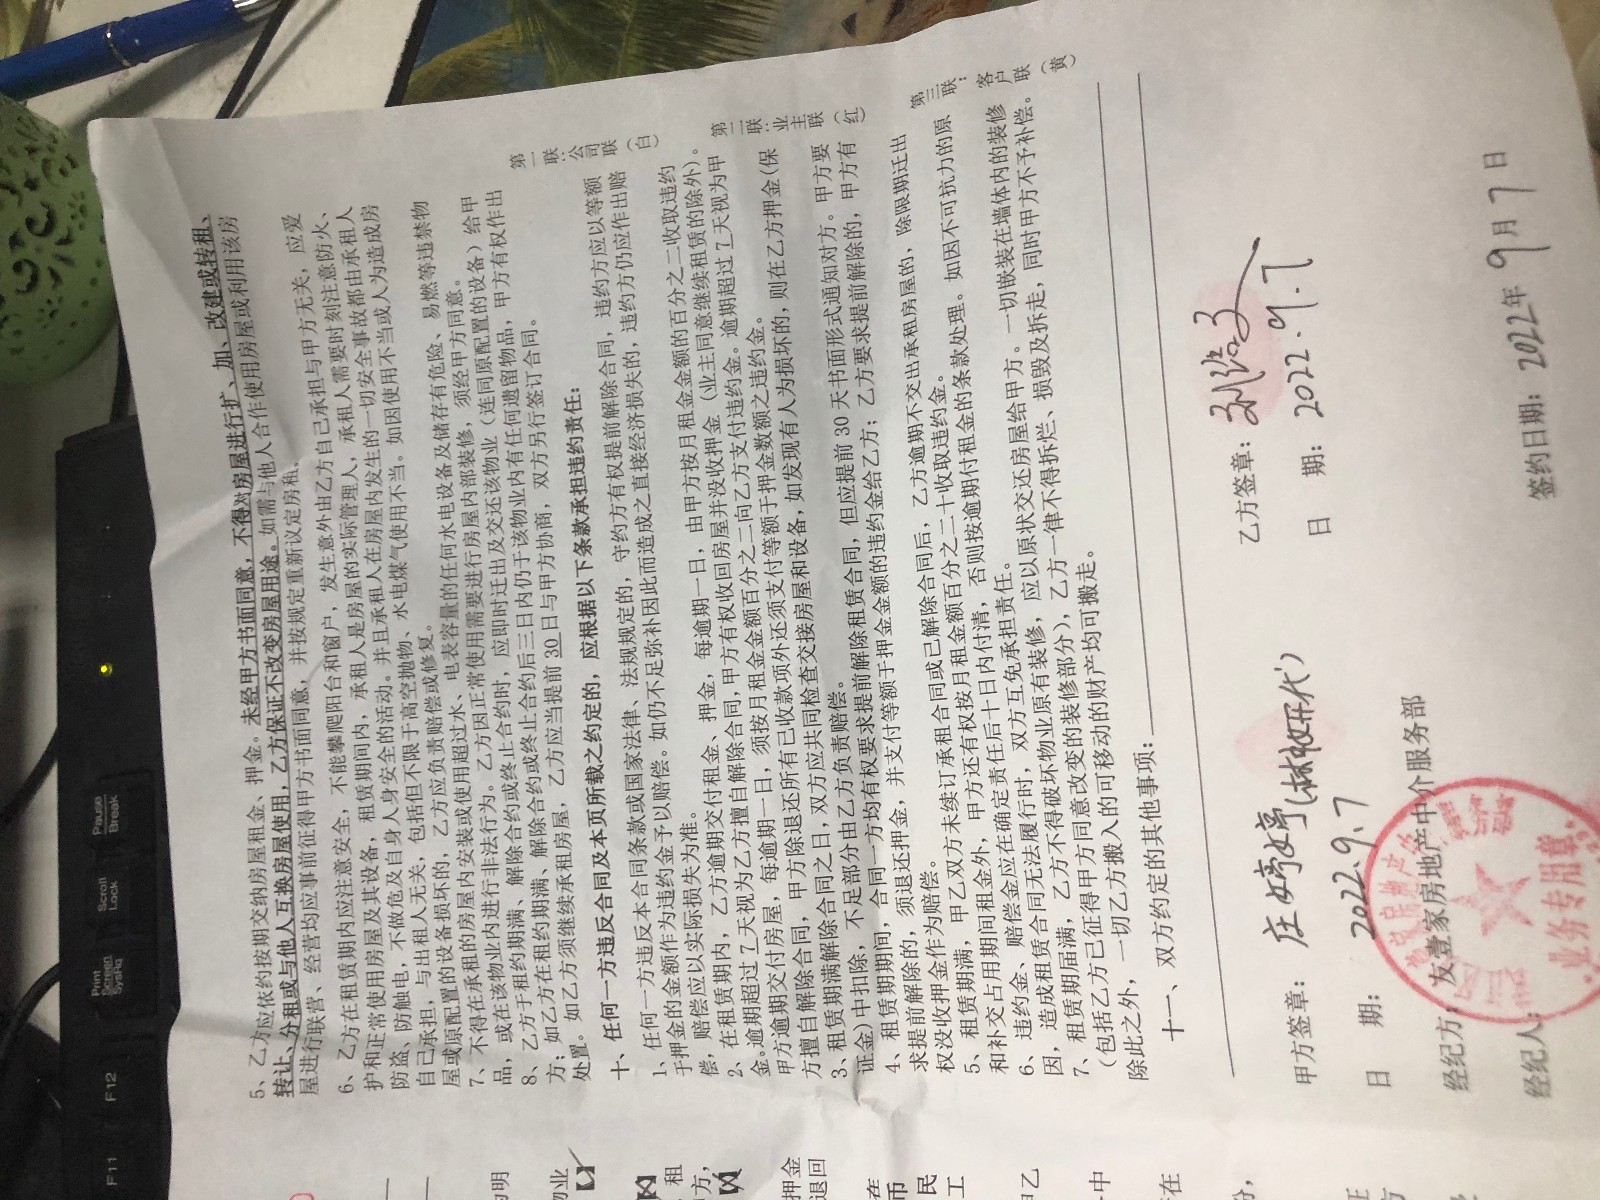 5、乙方应依约按期交纳房屋租金、押金。未经甲方书面同意，不得对房屋进行扩、加、改建或转租、
转让、分租或与他人互换房屋使用，乙方保证不改变房屋用途。如需与他人合作使用房屋或利用该房
屋进行联营、经营均应事前征得甲方书面同意，并按规定重新议定房租。
6、乙方在租赁期内应注意安全，不能攀爬阳台和窗户，发生意外由乙方自己承担与甲方无关，应爱
护和正常使用房屋及其设备，租赁期间内，承租人是房屋的实际管理人，承租人需要时刻注意防火、
防盗、防触电，不做危及自身人身安全的活动。并且承租人在房屋内发生的一切安全事故都由承租人
自己承担，与出租人无关，包括但不限于高空抛物、水电煤气使用不当。如因使用不当或人为造成房
屋或原配置的设备损坏的，乙方应负责赔偿或修复。
7、不得在承租的房屋内安装或使用超过水、电表容量的任何水电设备及储存有危险、易燃等违禁物
品，或在该物业内进行非法行为。乙方因正常使用需要进行房屋内部装修，须经甲方同意。
8、乙方于租约期满、解除合约或终止合约时，应即时迁出及交还该物业（连同原配置的设备）给甲
方；如乙方在租约期满、解除合约或终止合约后三日内仍于该物业内有任何遗留物品，甲方有权作出
处置。如乙方须继续承租房屋，乙方应当提前 30 日与甲方协商，双方另行签订合同。
十、任何一方违反合同及本页所载之约定的，应根据以下条款承担违约责任：
1、任何一方违反本合同条款或国家法律、法规规定的，守约方有权提前解除合同，违约方应以等额
于押金的金额作为违约金予以赔偿。如仍不足弥补因此而造成之直接经济损失的，违约方仍应作出赔
偿，赔偿应以实际损失为准。
2、在租赁期内，乙方逾期交付租金、押金，每逾期一日，由甲方按月租金金额的百分之二收取违约
金。逾期超过 7 天视为乙方擅自解除合同，甲方有权收回房屋并没收押金（业主同意继续租赁的除外）。
甲方逾期交付房屋，每逾期一日，须按月租金金额百分之二向乙方支付违约金。逾期超过 7 天视为甲
方擅自解除合同，甲方除退还所有已收款项外还须支付等额于押金数额之违约金。
3、租赁期满解除合同之日，双方应共同检查交接房屋和设备，如发现有人为损坏的，则在乙方押金（保
证金）中扣除，不足部分由乙方负责赔偿。
4、租赁期期间，合同一方均有权要求提前解除租赁合同，但应提前 30 天书面形式通知对方。甲方要
求提前解除的，须退还押金，并支付等额于押金金额的违约金给乙方；乙方要求提前解除的，甲方有
权没收押金作为赔偿。
5、租赁期满，甲乙双方未续订承租合同或已解除合同后，乙方逾期不交出承租房屋的，除限期迁出
和补交占用期间租金外，甲方还有权按月租金额百分之二十收取违约金。
6、违约金、赔偿金应在确定责任后十日内付清，否则按逾期付租金的条款处理。如因不可抗力的原
因，造成租赁合同无法履行时，双方互免承担责任。
7、租赁期届满，乙方不得破坏物业原有装修，应以原状交还房屋给甲方。一切嵌装在墙体内的装修
（包括乙方已征得甲方同意改变的装修部分），乙方一律不得拆烂、损毁及拆走，同时甲方不予补偿。
除此之外，一切乙方搬入的可移动的财产均可搬走。
十一、双方约定的其他事项：
第一联：公司联（白）
第二联：业主联（红）
第三联：客户联（黄）
甲方签章：庄婷婷(林
代)
乙方签章：
日 期：2022.9.7
日 期：2022.9.7
经纪方：友壹家房地产中介服务部
经纪人：
签约日期：2022年9月7日
业务专用章
Print
Screen
SysRq
Scroll
Lock
Pause
Break
F11
F12